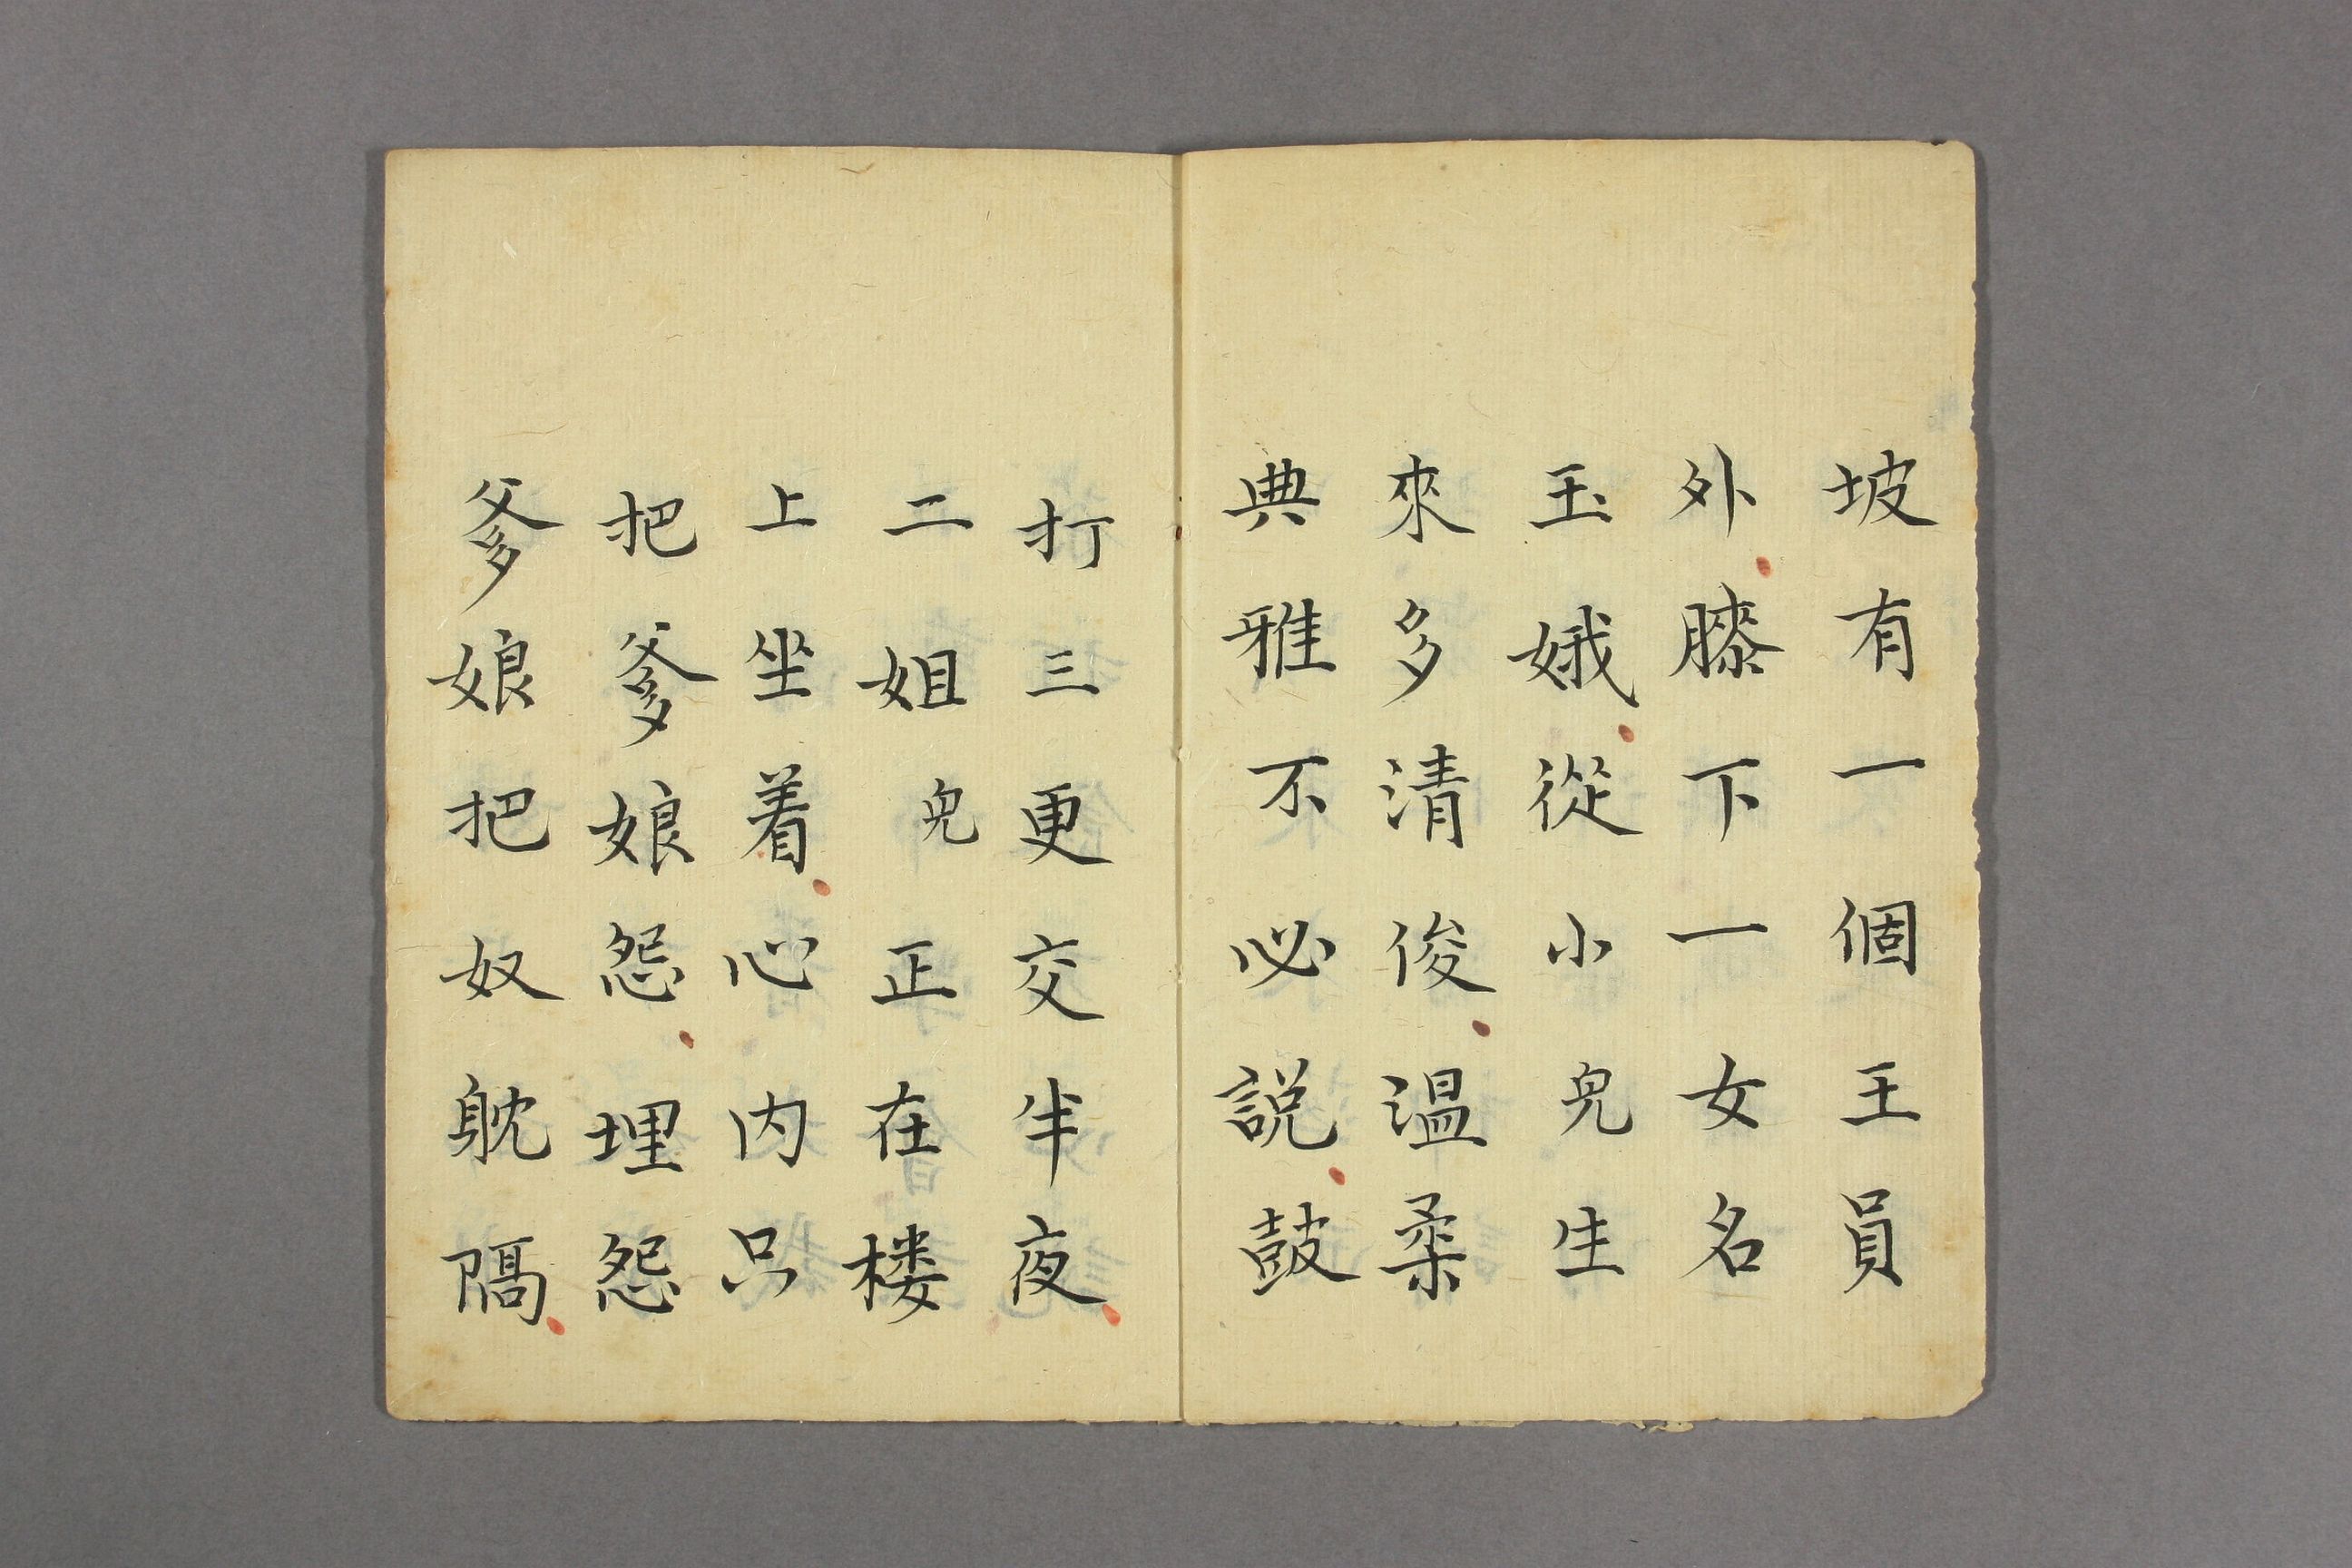 坡有一個王員
外膝下一女名
玉娥從小兒生
來多清俊溫柔
典雅不必説鼓
打三更交半夜
二姐兒正在楼
上坐着心内只
把爹娘怨埋怨
爹娘把奴躭隔